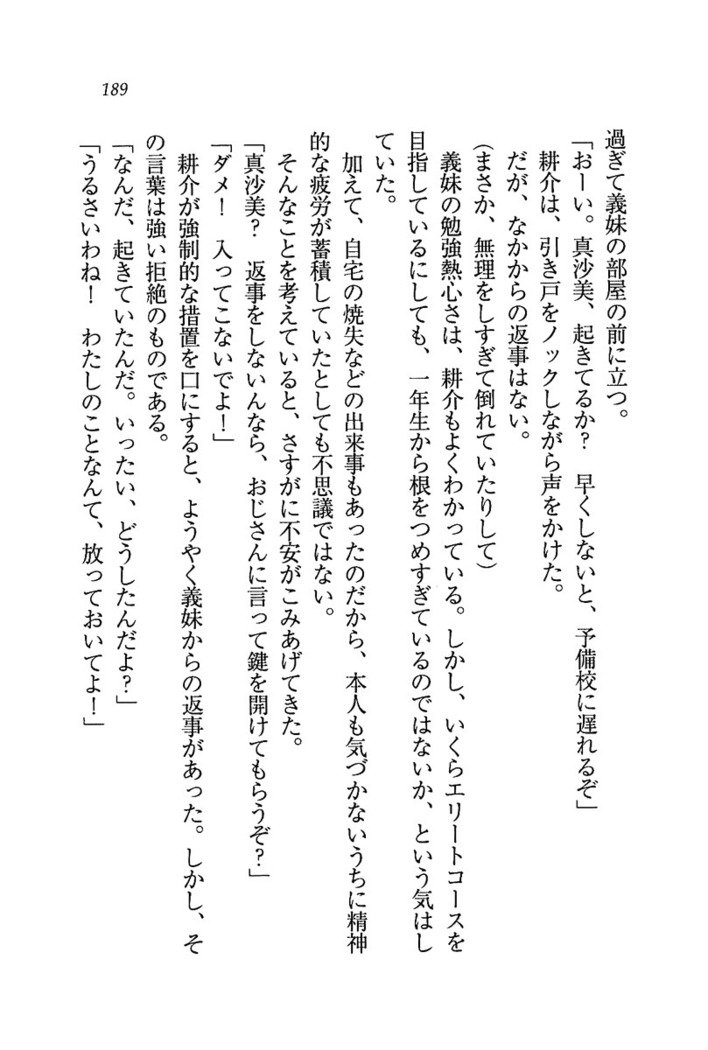 189
過ぎて義妹の部屋の前に立つ。
「おーい。真沙美、起きてるか？　早くしないと、予備校に遅れるぞ」
　耕介は、引き戸をノックしながら声をかけた。
　だが、なかからの返事はない。
（まさか、無理をしすぎて倒れていたりして）
　義妹の勉強熱心さは、耕介もよくわかっている。しかし、いくらエリートコースを
目指しているにしても、一年生から根をつめすぎているのではないか、という気はし
ていた。
　加えて、自宅の焼失などの出来事もあったのだから、本人も気づかないうちに精神
的な疲労が蓄積していたとしても不思議ではない。
　そんなことを考えていると、さすがに不安がこみあげてきた。
「真沙美？　返事をしないんなら、おじさんに言って鍵を開けてもらうぞ？」
「ダメ！　入ってこないでよ！」
　耕介が強制的な措置を口にすると、ようやく義妹からの返事があった。しかし、そ
の言葉は強い拒絶のものである。
「なんだ、起きていたんだ。いったい、どうしたんだよ？」
「うるさいわね！　わたしのことなんて、放っておいてよ！」